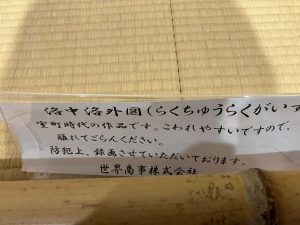 洛中洛外図(らくちゅうらくがいず
室町時代の作品です。こわれやすいですので、
離れてごらんください。
防犯上、録画させていただいております。
世界商事株式会社